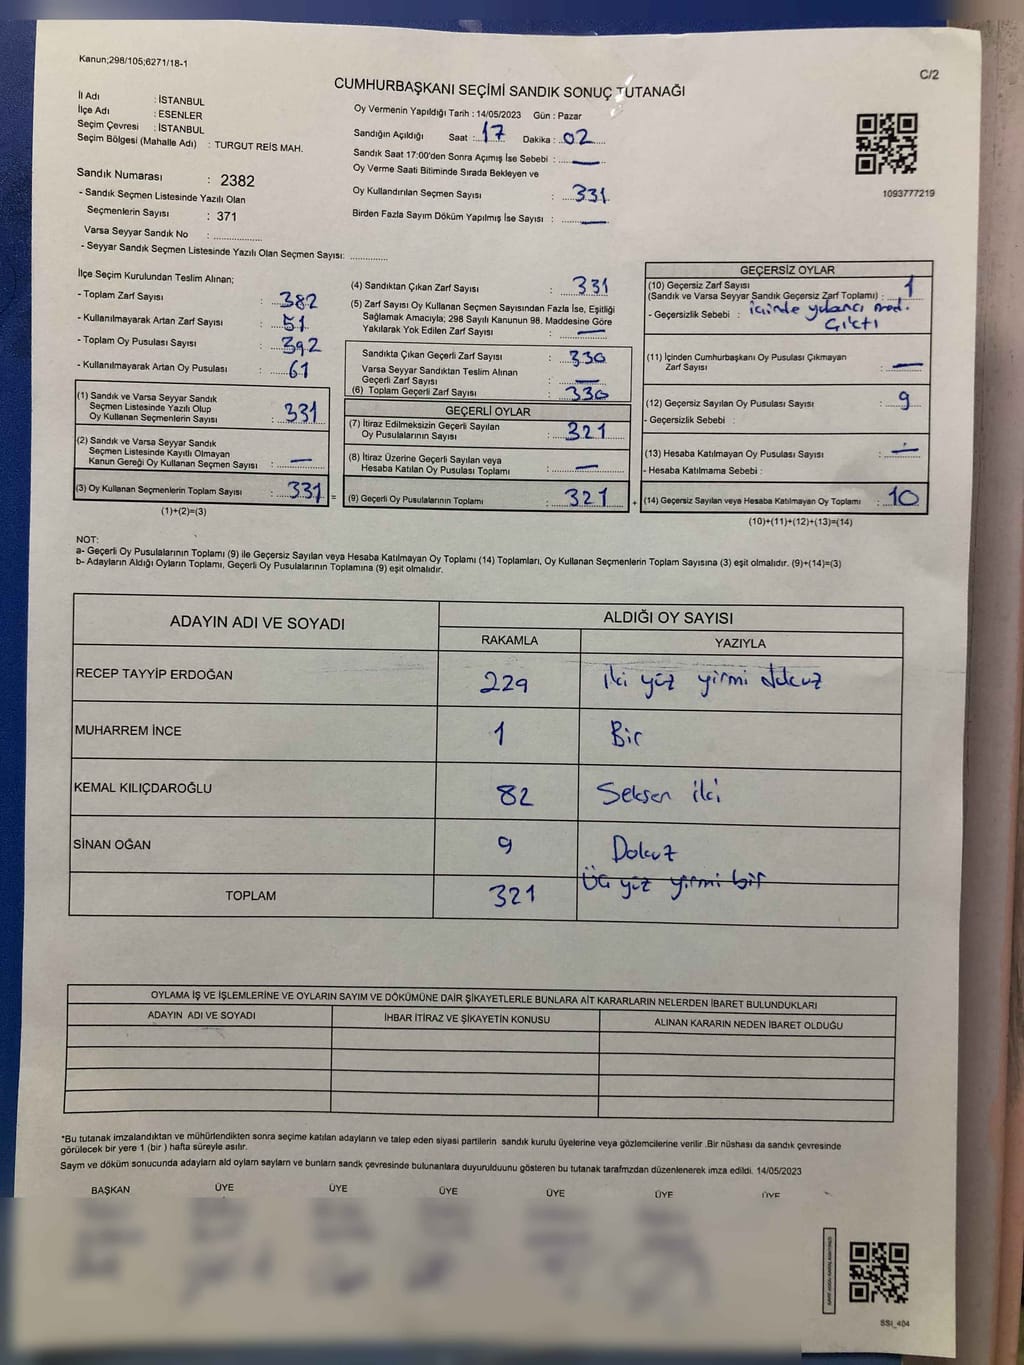 Kanun;298/105;6271/18-1
C/2
CUMHURBAŞKANI SEÇİMİ SANDIK SONUÇ TUTANAĞI
İl Adı : İSTANBUL
İlçe Adı : ESENLER
Seçim Çevresi : İSTANBUL
Seçim Bölgesi (Mahalle Adı) : TURGUT REİS MAH.
Sandık Numarası : 2382
- Sandık Seçmen Listesinde Yazılı Olan
Seçmenlerin Sayısı : 371
Varsa Seyyar Sandık No : ................
- Seyyar Sandık Seçmen Listesinde Yazılı Olan Seçmen Sayısı: .............
Oy Vermenin Yapıldığı Tarih : 14/05/2023 Gün : Pazar
Sandığın Açıldığı Saat : 17 Dakika : 02
Sandık Saat 17:00'den Sonra Açımış İse Sebebi : —
Oy Verme Saati Bitiminde Sırada Bekleyen ve
Oy Kullandırılan Seçmen Sayısı : 331
Birden Fazla Sayım Döküm Yapılmış İse Sayısı : —
1093777219
İlçe Seçim Kurulundan Teslim Alınan;
- Toplam Zarf Sayısı : 382
- Kullanılmayarak Artan Zarf Sayısı : 51
- Toplam Oy Pusulası Sayısı : 392
- Kullanılmayarak Artan Oy Pusulası : 61
(1) Sandık ve Varsa Seyyar Sandık
Seçmen Listesinde Yazılı Olup
Oy Kullanan Seçmenlerin Sayısı : 331
(2) Sandık ve Varsa Seyyar Sandık
Seçmen Listesinde Kayıtlı Olmayan
Kanun Gereği Oy Kullanan Seçmen Sayısı : —
(3) Oy Kullanan Seçmenlerin Toplam Sayısı : 331 =
(1)+(2)=(3)
(4) Sandıktan Çıkan Zarf Sayısı : 331
(5) Zarf Sayısı Oy Kullanan Seçmen Sayısından Fazla İse, Eşitliği
Sağlamak Amacıyla; 298 Sayılı Kanunun 98. Maddesine Göre
Yakılarak Yok Edilen Zarf Sayısı : —
Sandıkta Çıkan Geçerli Zarf Sayısı : 330
Varsa Seyyar Sandıktan Teslim Alınan
Geçerli Zarf Sayısı : —
(6) Toplam Geçerli Zarf Sayısı : 330
GEÇERLİ OYLAR
(7) İtiraz Edilmeksizin Geçerli Sayılan
Oy Pusulalarının Sayısı : 321
(8) İtiraz Üzerine Geçerli Sayılan veya
Hesaba Katılan Oy Pusulası Toplamı : —
(9) Geçerli Oy Pusulalarının Toplamı : 321 +
GEÇERSİZ OYLAR
(10) Geçersiz Zarf Sayısı : 1
(Sandık ve Varsa Seyyar Sandık Geçersiz Zarf Toplamı) :
- Geçersizlik Sebebi : içinde yabancı mad.
Çıktı
(11) İçinden Cumhurbaşkanı Oy Pusulası Çıkmayan
Zarf Sayısı : —
(12) Geçersiz Sayılan Oy Pusulası Sayısı : 9
- Geçersizlik Sebebi :
(13) Hesaba Katılmayan Oy Pusulası Sayısı : —
- Hesaba Katılmama Sebebi :
(14) Geçersiz Sayılan veya Hesaba Katılmayan Oy Toplamı : 10
(10)+(11)+(12)+(13)=(14)
NOT:
a- Geçerli Oy Pusulalarının Toplamı (9) ile Geçersiz Sayılan veya Hesaba Katılmayan Oy Toplamı (14) Toplamları, Oy Kullanan Seçmenlerin Toplam Sayısına (3) eşit olmalıdır. (9)+(14)=(3)
b- Adayların Aldığı Oyların Toplamı, Geçerli Oy Pusulalarının Toplamına (9) eşit olmalıdır.
ADAYIN ADI VE SOYADI
ALDIĞI OY SAYISI
RAKAMLA YAZIYLA
RECEP TAYYİP ERDOĞAN 229 iki yüz yirmi dokuz
MUHARREM İNCE 1 Bir
KEMAL KILIÇDAROĞLU 82 Seksen iki
SİNAN OĞAN 9 Dokuz
TOPLAM 321 Üç yüz yirmi bir
OYLAMA İŞ VE İŞLEMLERİNE VE OYLARIN SAYIM VE DÖKÜMÜNE DAİR ŞİKAYETLERLE BUNLARA AİT KARARLARIN NELERDEN İBARET BULUNDUKLARI
ADAYIN ADI VE SOYADI İHBAR İTİRAZ VE ŞİKAYETİN KONUSU ALINAN KARARIN NEDEN İBARET OLDUĞU
*Bu tutanak imzalandıktan ve mühürlendikten sonra seçime katılan adayların ve talep eden siyasi partilerin sandık kurulu üyelerine veya gözlemcilerine verilir .Bir nüshası da sandık çevresinde
görülecek bir yere 1 (bir ) hafta süreyle asılır.
Sayım ve döküm sonucunda adayların ald oyların sayları ve bunların sandk çevresinde bulunanlara duyurulduunu gösteren bu tutanak tarafmzdan düzenlenerek imza edildi. 14/05/2023
BAŞKAN ÜYE ÜYE ÜYE ÜYE ÜYE ÜYE
SSI_404